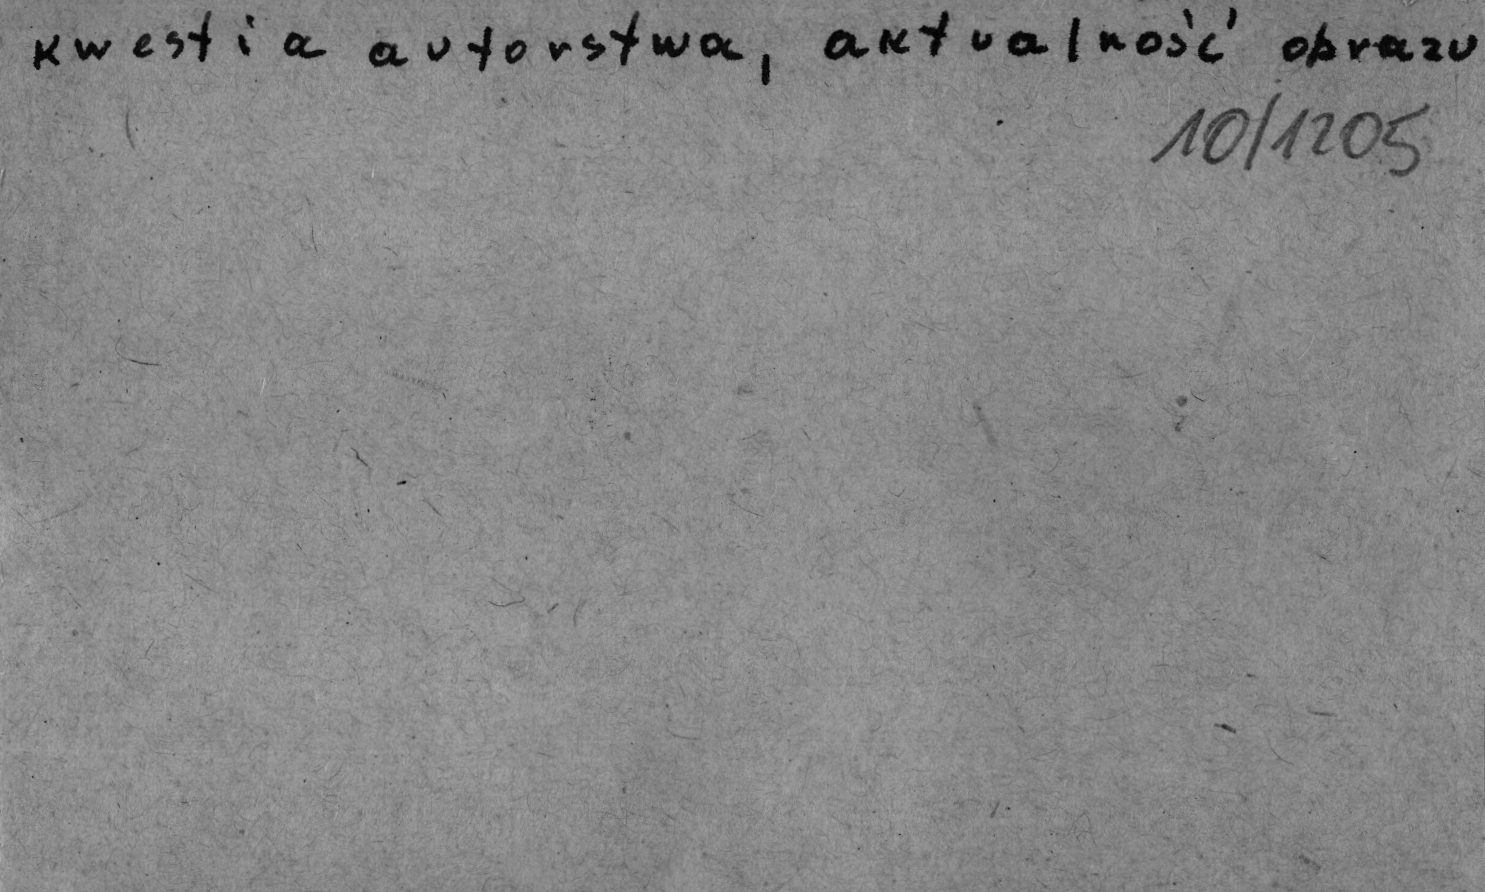 kwestia autorstwa, aktualność obrazu
10/1205